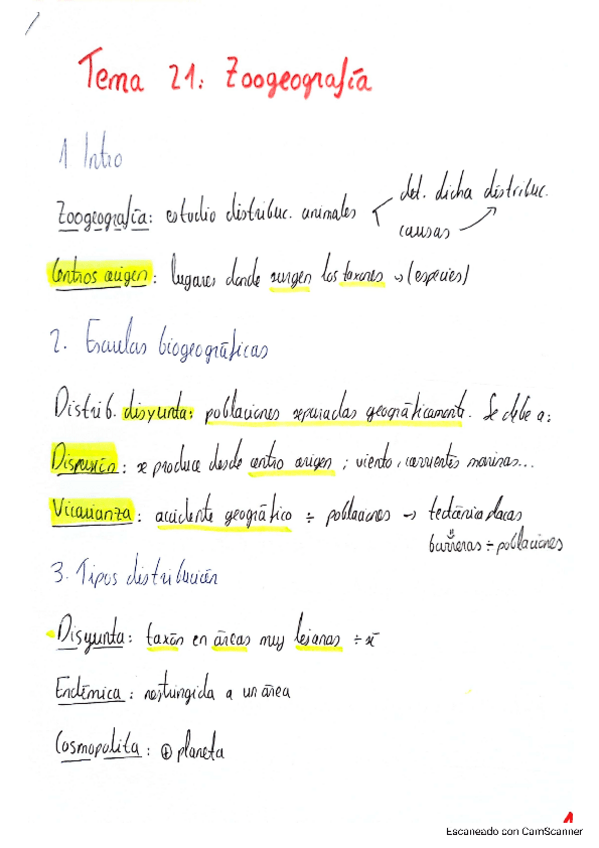 Tema 21: Zoogeografía
1 Intro
Zoogeografía: estudio distribuc. animales
det. dicha distribuc.
causas
Centros origen: lugares donde surgen los taxones → (especies)
2. Escuelas biogeográficas
Distrib. disyunta: poblaciones separadas geográficamente. Se debe a:
Dispersión: se produce desde centro origen; viento, corrientes marinas...
Vicarianza: accidente geográfico ÷ poblaciones → tectónica placas
⇓
barreras ÷ poblaciones
3. Tipos distribución
Disyunta: taxón en áreas muy lejanas ÷ sí
Endémica: restringida a un área
Cosmopolita: ⊕ planeta
1
Escaneado con CamScanner